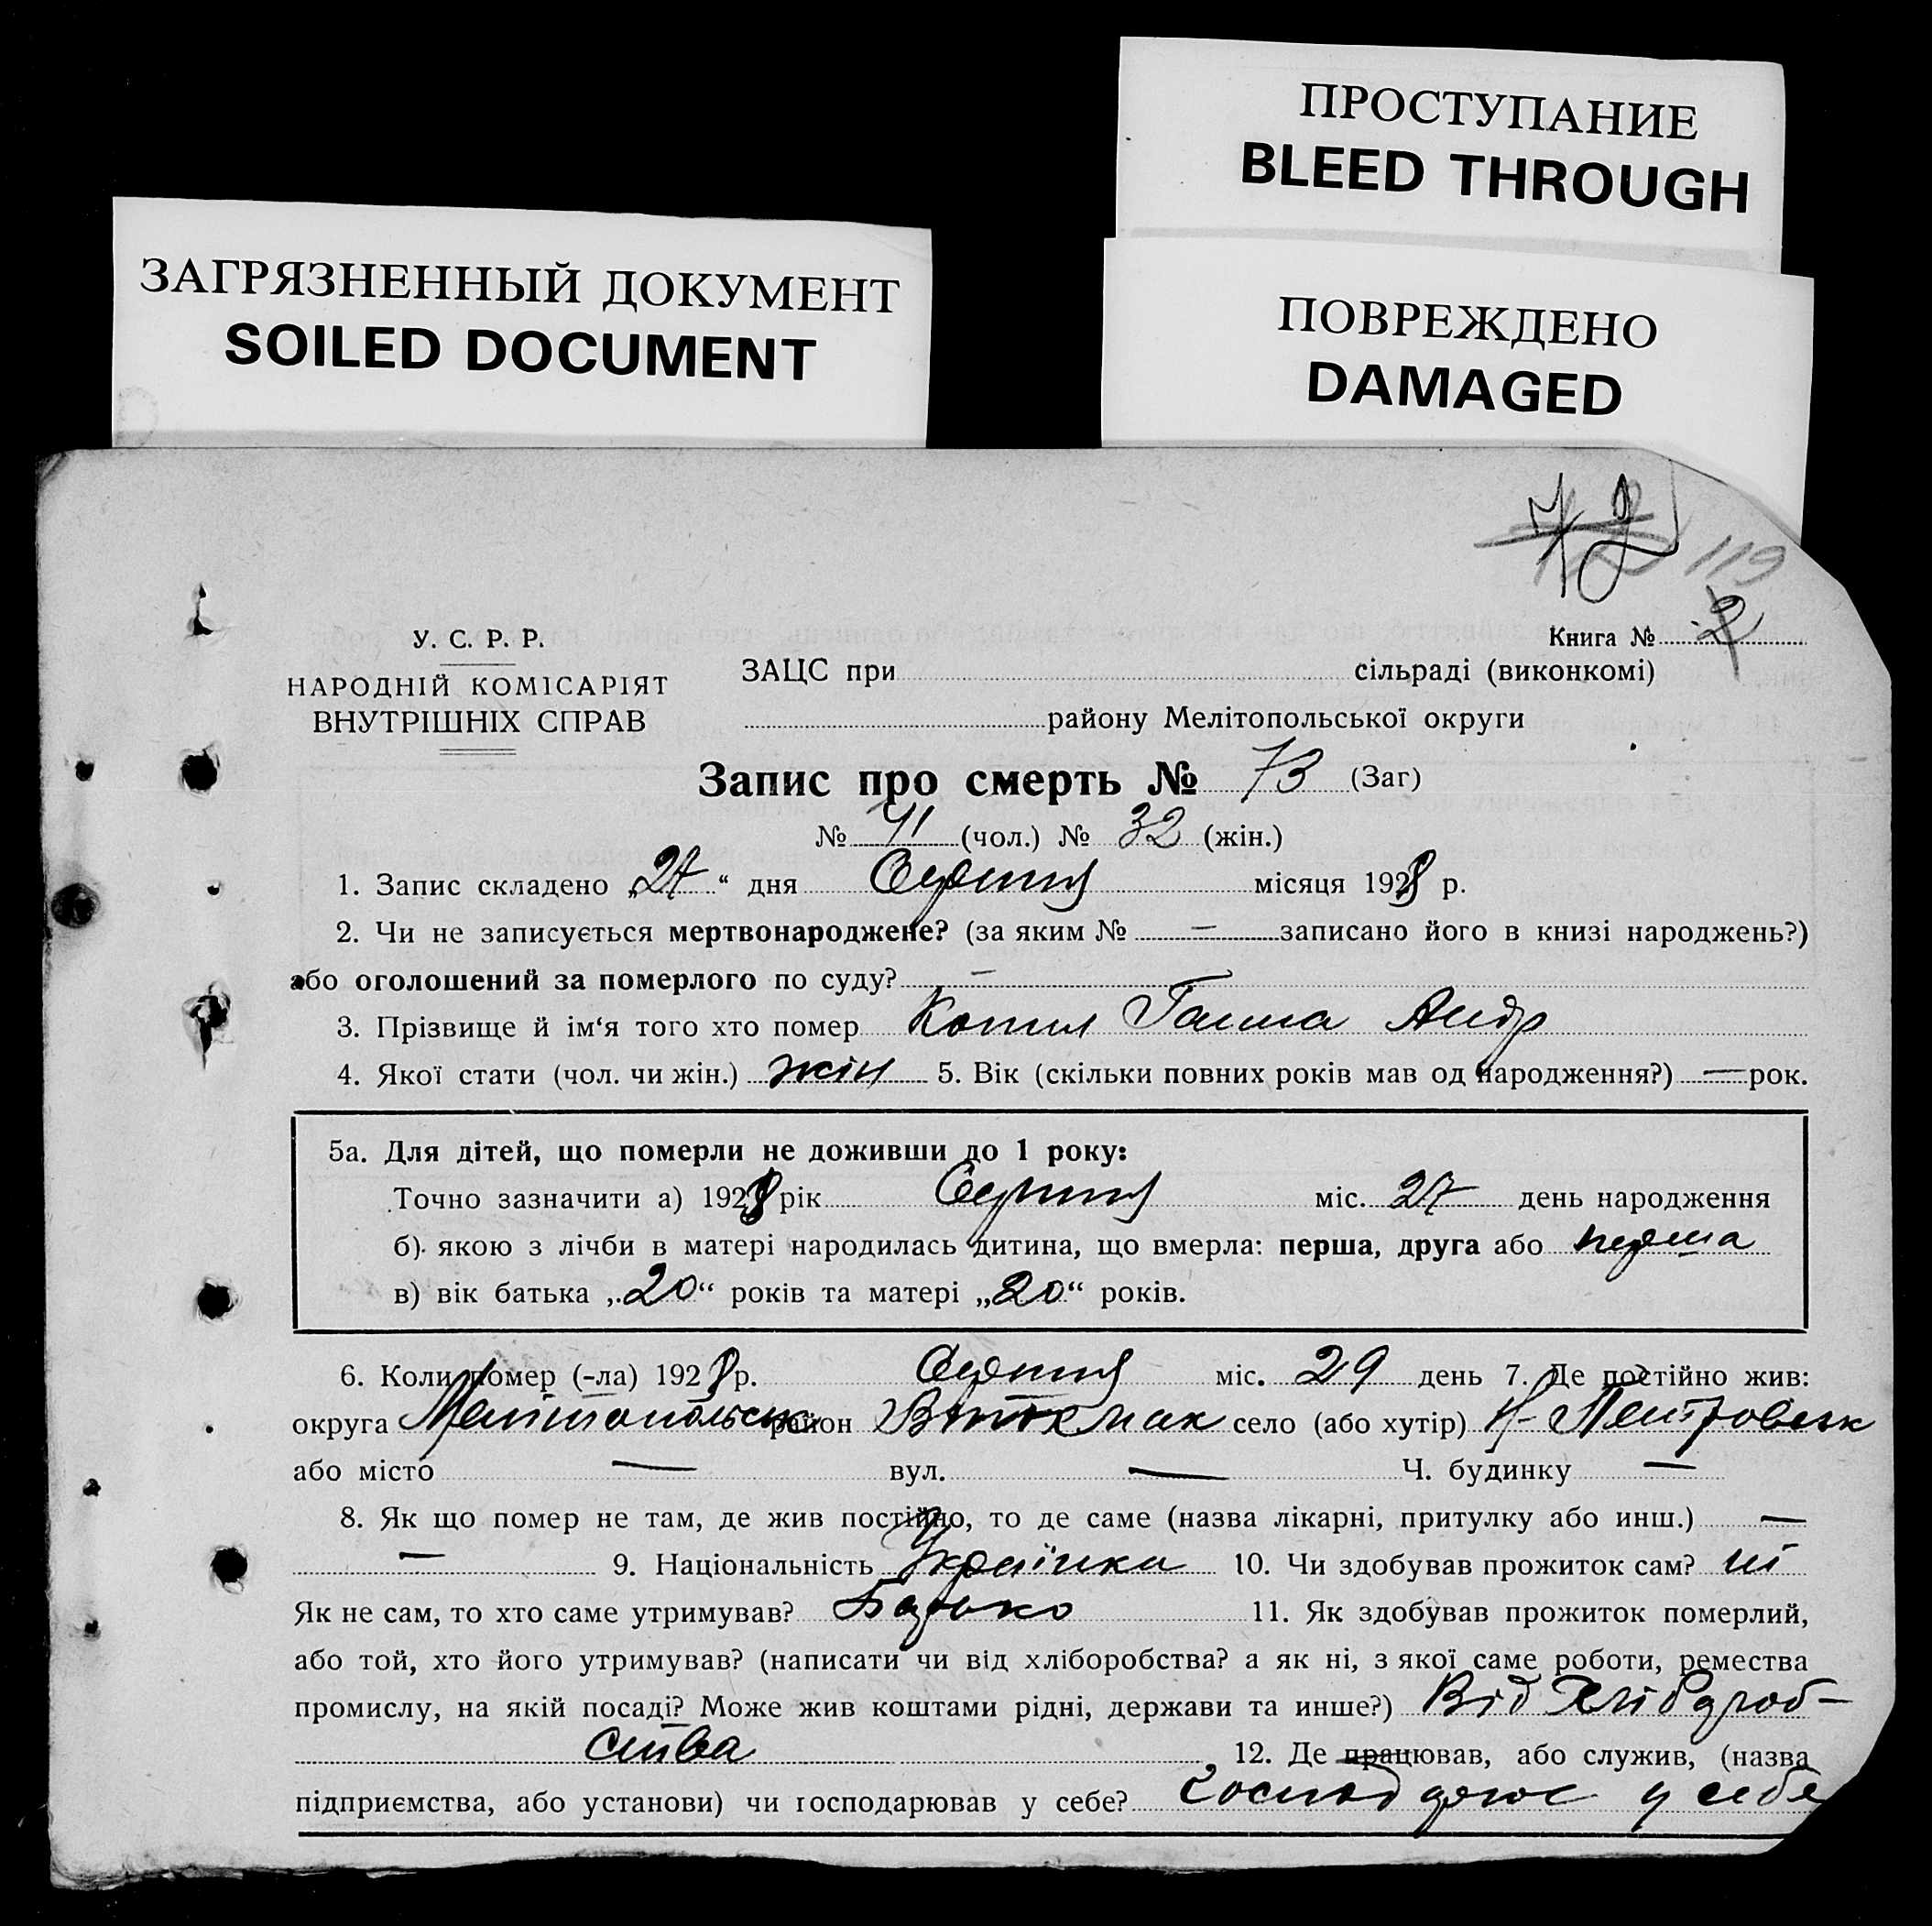 ПРОСТУПАНИЕ
BLEED THROUGH
ЗАГРЯЗНЕННЫЙ ДОКУМЕНТ
SOILED DOCUMENT
ПОВРЕЖДЕНО
DAMAGED
72
119
Книга № 2
У. С. Р. Р.
НАРОДНІЙ КОМІСАРІЯТ
ВНУТРІШНІХ СПРАВ
ЗАЦС при сільраді (виконкомі)
району Мелітопольської округи
Запис про смерть № 73 (Заг)
№ 41 (чол.) № 32 (жін.)
1. Запис складено „ “ дня Серпня місяця 1928 р.
2. Чи не записується мертвонароджене? (за яким № — записано його в книзі народжень?)
або оголошений за померлого по суду? —
3. Прізвище й ім‘я того хто помер Ганна Андр
4. Якої стати (чол. чи жін.) жін 5. Вік (скільки повних років мав од народження?) — рок.
5а. Для дітей, що померли не доживши до 1 року:
Точно зазначити а) 1928 рік Серпня міс. 27 день народження
б) якою з лічби в матері народилась дитина, що вмерла: перша, друга або перша
в) вік батька „20“ років та матері „20“ років.
6. Коли помер (-ла) 1928 р. Серпня міс. 29 день 7. Де постійно жив:
округа район село (або хутір)
або місто — вул. — Ч. будинку —
8. Як що помер не там, де жив постійно, то де саме (назва лікарні, притулку або инш.) —
— 9. Національність Українка 10. Чи здобував прожиток сам? ні
Як не сам, то хто саме утримував? Батько 11. Як здобував прожиток померлий,
або той, хто його утримував? (написати чи від хліборобства? а як ні, з якої саме роботи, ремества
промислу, на якій посаді? Може жив коштами рідні, держави та инше?) Від
ства 12. Де працював, або служив, (назва
підприємства, або установи) чи господарював у себе? у себе